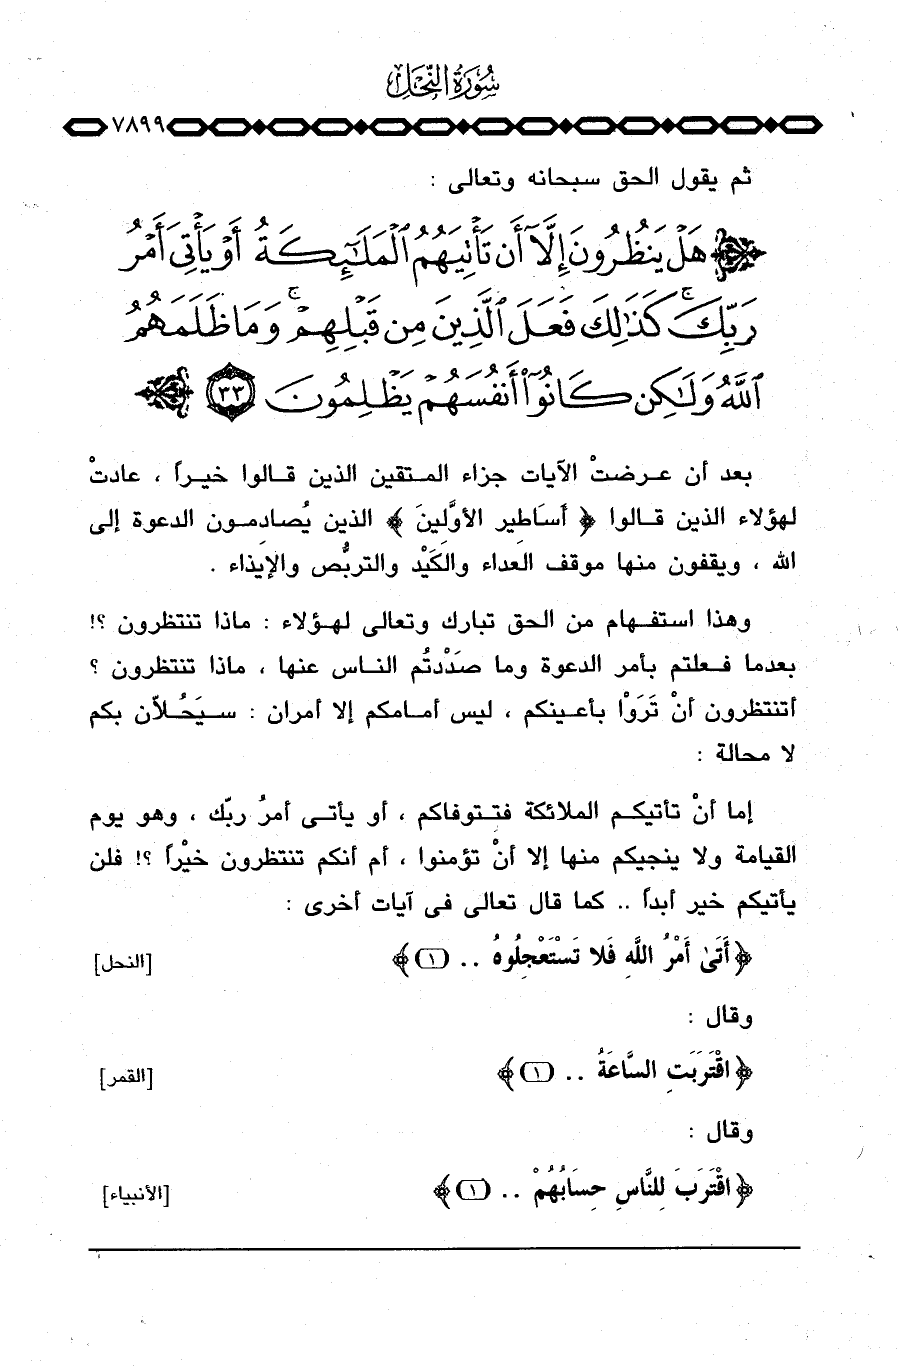 سُورَةُ النَّحْلِ
٧٨٩٩
ثم يقول الحق سبحانه وتعالى :
هَلْ يَنظُرُونَ إِلَّآ أَن تَأْتِيَهُمُ ٱلْمَلَٰٓئِكَةُ أَوْ يَأْتِىَ أَمْرُ
رَبِّكَ ۚ كَذَٰلِكَ فَعَلَ ٱلَّذِينَ مِن قَبْلِهِمْ ۚ وَمَا ظَلَمَهُمُ
ٱللَّهُ وَلَٰكِن كَانُوٓا۟ أَنفُسَهُمْ يَظْلِمُونَ ٣٣
بعد أن عـرضتْ الآيات جزاء المـتقين الذين قـالوا خيـراً ، عادتْ
لهؤلاء الذين قـالوا ﴿ أَسَاطِير الأوَّلِينَ ﴾ الذين يُصادمـون الدعوة إلى
الله ، ويقفون منها موقف العداء والكَيْد والتربُّص والإيذاء .
وهذا استفـهام من الحق تبارك وتعالى لهـؤلاء : ماذا تنتظرون ؟!
بعدما فـعلتم بأمر الدعوة وما صدَدْتُم النـاس عنها ، ماذا تنتظرون ؟
أتنتظرون أنْ تَرَوْا بأعـينكم ، ليس أمـامكم إلا أمران : سـيَحُـلاّن بكم
لا محالة :
إما أنْ تأتيكـم الملائكة فتـتوفاكم ، أو يأتـى أمرُ ربّك ، وهو يوم
القيامة ولا ينجيكم منها إلا أنْ تؤمنوا ، أم أنكم تنتظرون خيْراً ؟! فلن
يأتيكم خير أبداً .. كما قال تعالى فى آيات أخرى :
﴿أَتَىٰ أَمْرُ اللَّهِ فَلا تَسْتَعْجِلُوهُ .. (١)﴾ [النحل]
وقال :
﴿اقْتَرَبَتِ السَّاعَةُ .. (١)﴾ [القمر]
وقال :
﴿اقْتَرَبَ لِلنَّاسِ حِسَابُهُمْ .. (١)﴾ [الأنبياء]